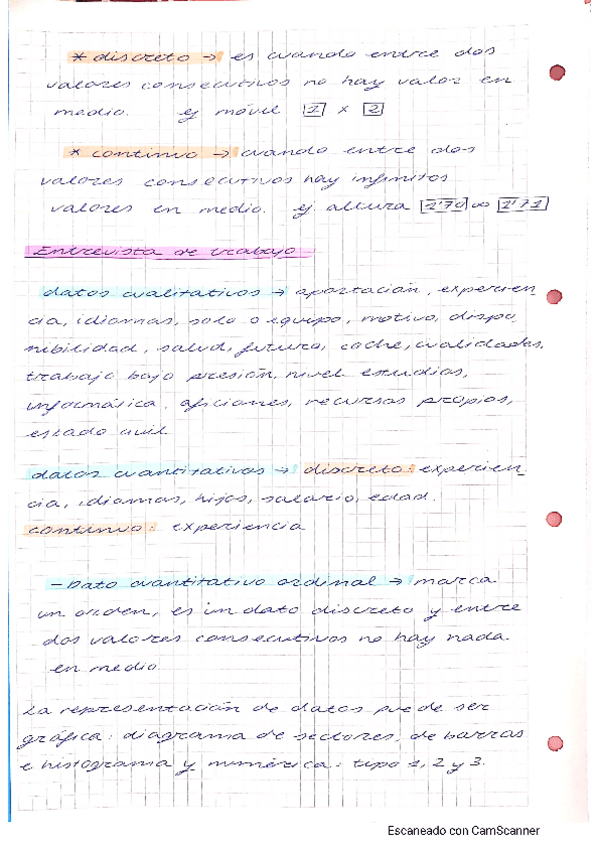 * discreto → es cuando entre dos
valores consecutivos no hay valor en
medio. ej móvil 1 x 2
* continuo → cuando entre dos
valores consecutivos hay infinitos
valores en medio. ej. altura 1'70 ∞ 1'71
Entrevista de trabajo
datos cualitativos → aportación, experien
cia, idiomas, solo o equipo, motivo, dispo
nibilidad, salud, futuro, coche, cualidades,
trabajo bajo presión, nivel estudios,
informática, aficiones, recursos propios,
estado civil
datos cuantitativos → discreto: experien
cia, idiomas, hijos, salario, edad.
continuo: experiencia
- Dato cuantitativo ordinal → marca
un orden, es un dato discreto y entre
dos valores consecutivos no hay nada
en medio
La representación de datos puede ser
gráfica: diagrama de sectores, de barras
e histograma y numérica: tipo 1, 2 y 3.
Escaneado con CamScanner